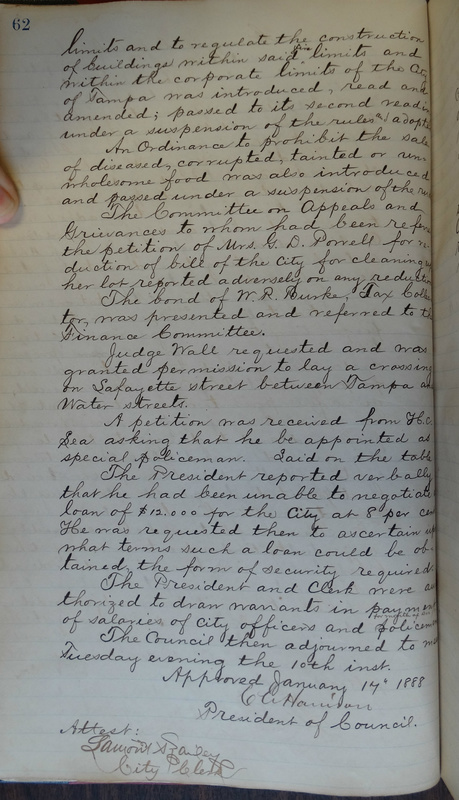 62
limits and to regulate the construction
of buildings within said fire limits and
within the corporate limits of the City
of Tampa was introduced, read and
amended; passed to its second readin
under a suspension of the rules & adopte
An Ordinance to prohibit the sale
of diseased, corrupted, tainted or un-
wholesome food was also introduced
and passed under a suspension of the ru
The Committee on Appeals and
Grievances to whom had been refer
the petition of Mrs. G. D. Powell for re
duction of bill of the City for cleaning u
her lot reported adversely on any reductio
The bond of W. R. Burke, Tax Collec
tor, was presented and referred to th
Finance Committee.
Judge Wall requested and was
granted permission to lay a crossing
on Lafayette street between Tampa an
Water streets.
A petition was received from H. C.
Lea asking that he be appointed as
special policeman. Laid on the table
The President reported verbally
that he had been unable to negotiate
loan of $12.000 for the City at 8 per cen
He was requested then to ascertain up
what terms such a loan could be ob-
tained, the form of security required
The President and Clerk were au
thorized to draw warrants in paymen
of salaries of City officers and policemen
The Council then adjourned to me
Tuesday evening the 10th inst.
Approved January 14" 1888
President of Council.
Attest:
City Clerk